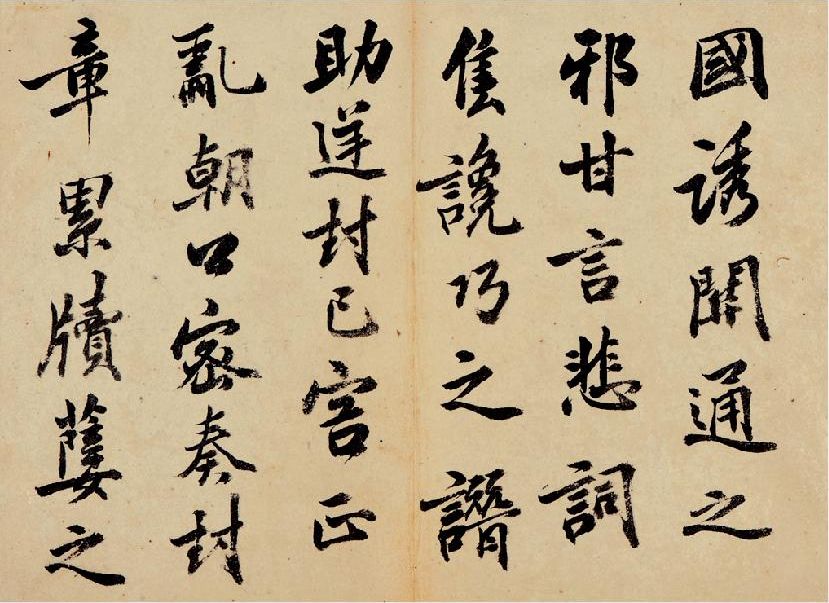 國誘關通之
邪甘言悲詞
售讒巧之譖
助逆封已害正
亂朝口密奏封
章累牘之